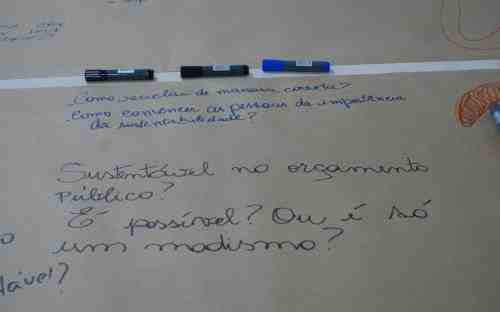 . Como reciclar de maneira correta?
. Como convencer as pessoas da importância
da sustentabilidade?
Sustentável no orçamento
Público?
É possível? Ou é só
um modismo?
tável?